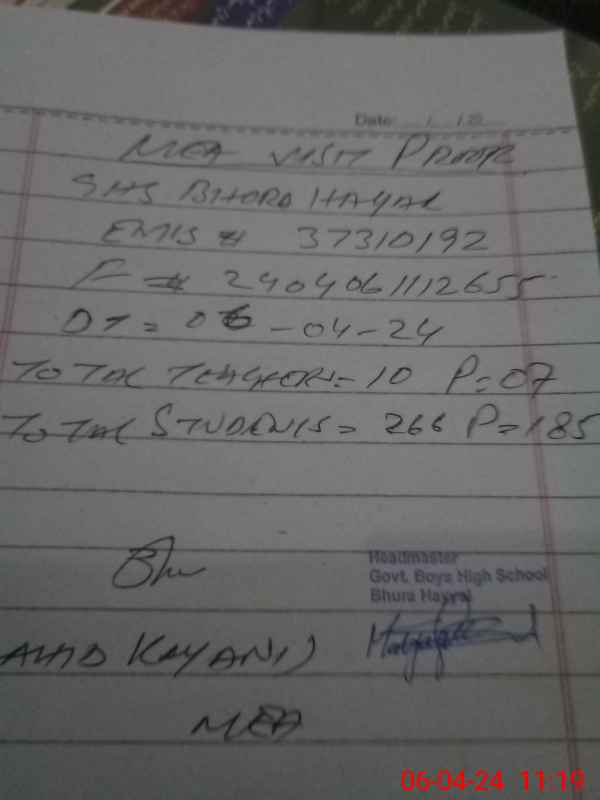 Date: / /20
MEA VISIT PROOF
GHS BHORA HAYAL
EMIS # 37310192
F = # 2404061112655
DT = 06-04-24
TOTAL TEACHERS = 10 P = 07
TOTAL STUDENTS = 266 P = 185
Headmaster
Govt. Boys High School
Bhura Hayyal
KAYANI)
MEA
06-04-24 11:19